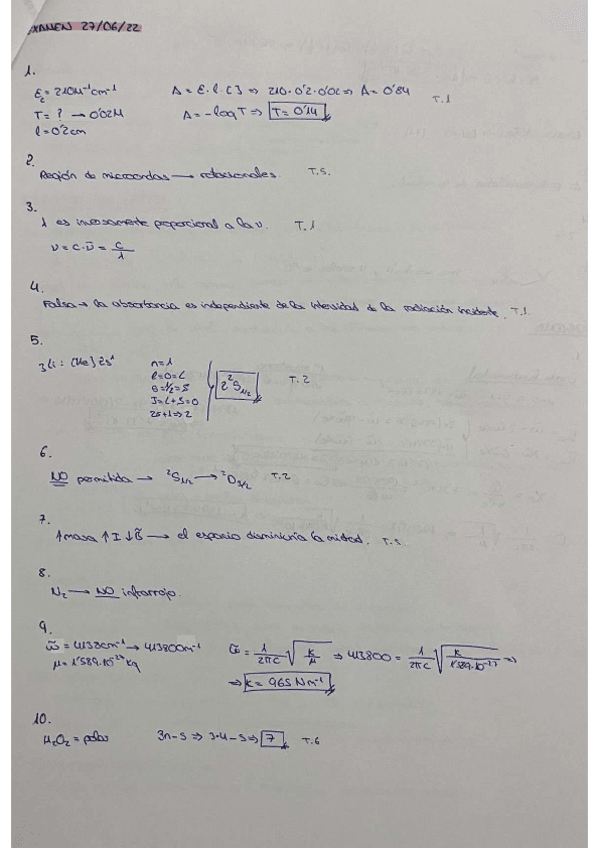 EXAMEN 27/06/22
1.
ε = 210M⁻¹cm⁻¹ A = ε·l·[ ] ⇒ 210·0'2·0'02 ⇒ A = 0'84 T.1
T = ? → 0'02M A = -log T ⇒ T = 0'14
l = 0'2cm
2.
Región de microondas → rotacionales. T.5.
3.
λ es inversamente proporcional a la ν. T.1
ν = c·ν̃ = c/λ
4.
Falsa → la absorbancia es independiente de la intensidad de la radiación incidente. T.1
5.
₃Li: [He] 2s¹ n=1
l=0=L
s=1/2=S 2²S₁/₂ T.2
J=L+S=0
2s+1 ⇒ 2
6.
NO permitida → ²S₁/₂ → ²D₃/₂ T.2
7.
↑masa ↑I ↓B̃ → el espacio disminuiría la mitad. T.5.
8.
N₂ → NO infrarrojo.
9.
ω̃ = 4138cm⁻¹ → 413800m⁻¹ ω̃ = 1/2πc √k/μ ⇒ 413800 = 1/2πc √k/1'589·10⁻²⁷ ⇒
μ = 1'589·10⁻²⁷ kg
⇒ k = 965 Nm⁻¹
10.
H₂O₂ = polar 3n-5 ⇒ 3·4-5 ⇒ 7 T.6